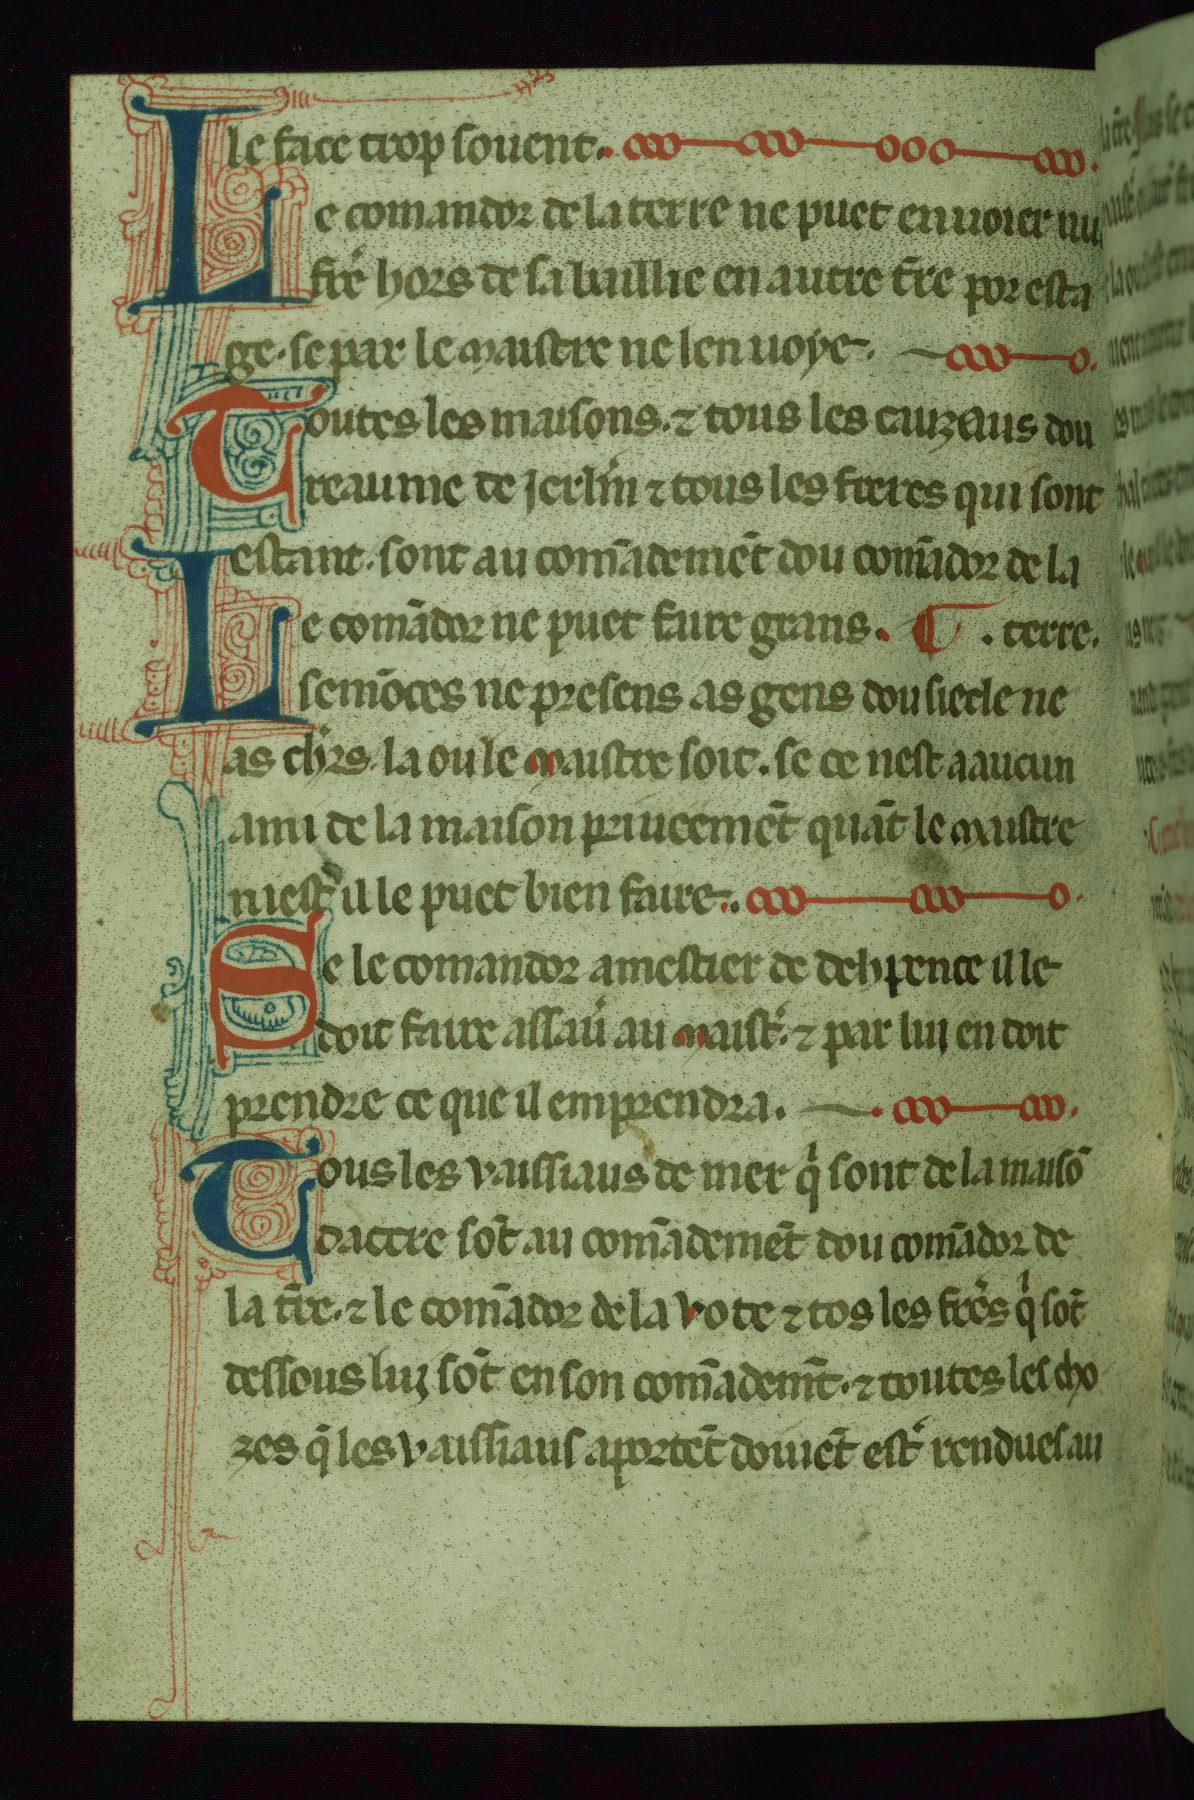 le face trop souent.
Le comandor de la terre ne puet enuoier nu
fre᷑ hors de sa baillie en autre tr̄e por esta
ge. se par le maistre ne len uoye.
Toutes les maisons. ⁊ tous les cauzaus dou
reaume de Jerlm̄ ⁊ tous les freres qui sont
estant. sont au comādemēt dou comādor de la
Le comādor ne puet faire grans. terre.
semōces ne presens as gens dou siecle ne
as chl̄rs. la ou le maistre soit. se ce nest a aucun
ami de la maison priueemēt quāt le maistre
niest il le puet bien faire.
Se le comandor a mestier de dehpence il le
doit faire assau᷑ au maist᷑. ⁊ par luj en doit
prendre ce que il em prendra.
Tous les vaissiaus de mer qͥ sont de la maisō
dacre sōt au comādemēt dou comādor de
la tr̄e. ⁊ le comādor de la vote ⁊ tos les fre᷑s qͥ sōt
dessous luj sōt en son comādem̄t. ⁊ toutes les cho
zes q̄ les vaissiaus aportēt doiuēt est᷑ rendues au